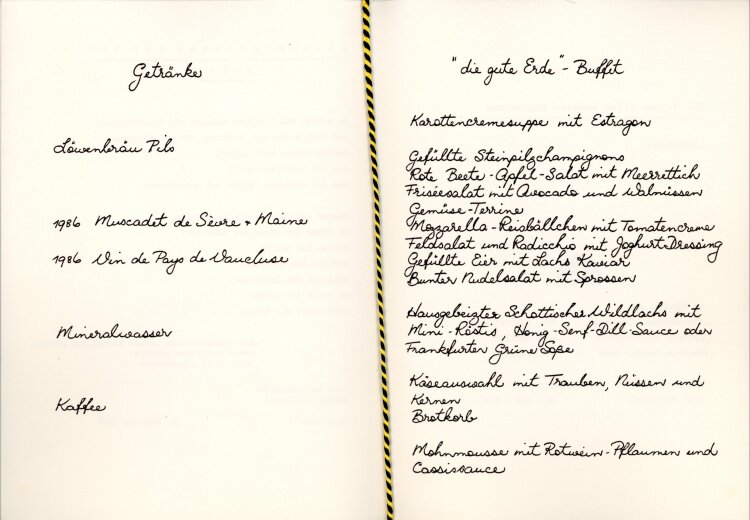 Getränke
Löwenbräu Pils
1986 Muscadet de Sèvre + Maine
1986 Vin de Pays de Vaucluse
Mineralwasser
Kaffee
"die gute Erde" - Buffet
Karottencremesuppe mit Estragon
Gefüllte Steinpilzchampignons
Rote Beete-Apfel-Salat mit Meerrettich
Friséesalat mit Avocado und Walnüssen
Gemüse-Terrine
Mozzarella-Reisbällchen mit Tomatencreme
Feldsalat und Radicchio mit Joghurt-Dressing
Gefüllte Eier mit Lachs Kaviar
Bunter Nudelsalat mit Sprossen
Hausgebeizter Schottischer Wildlachs mit
Mini-Röstis, Honig-Senf-Dill-Sauce oder
Frankfurter Grüne Soße
Käseauswahl mit Trauben, Nüssen und
Kernen
Brotkorb
Mohnmousse mit Rotwein-Pflaumen und
Cassissauce